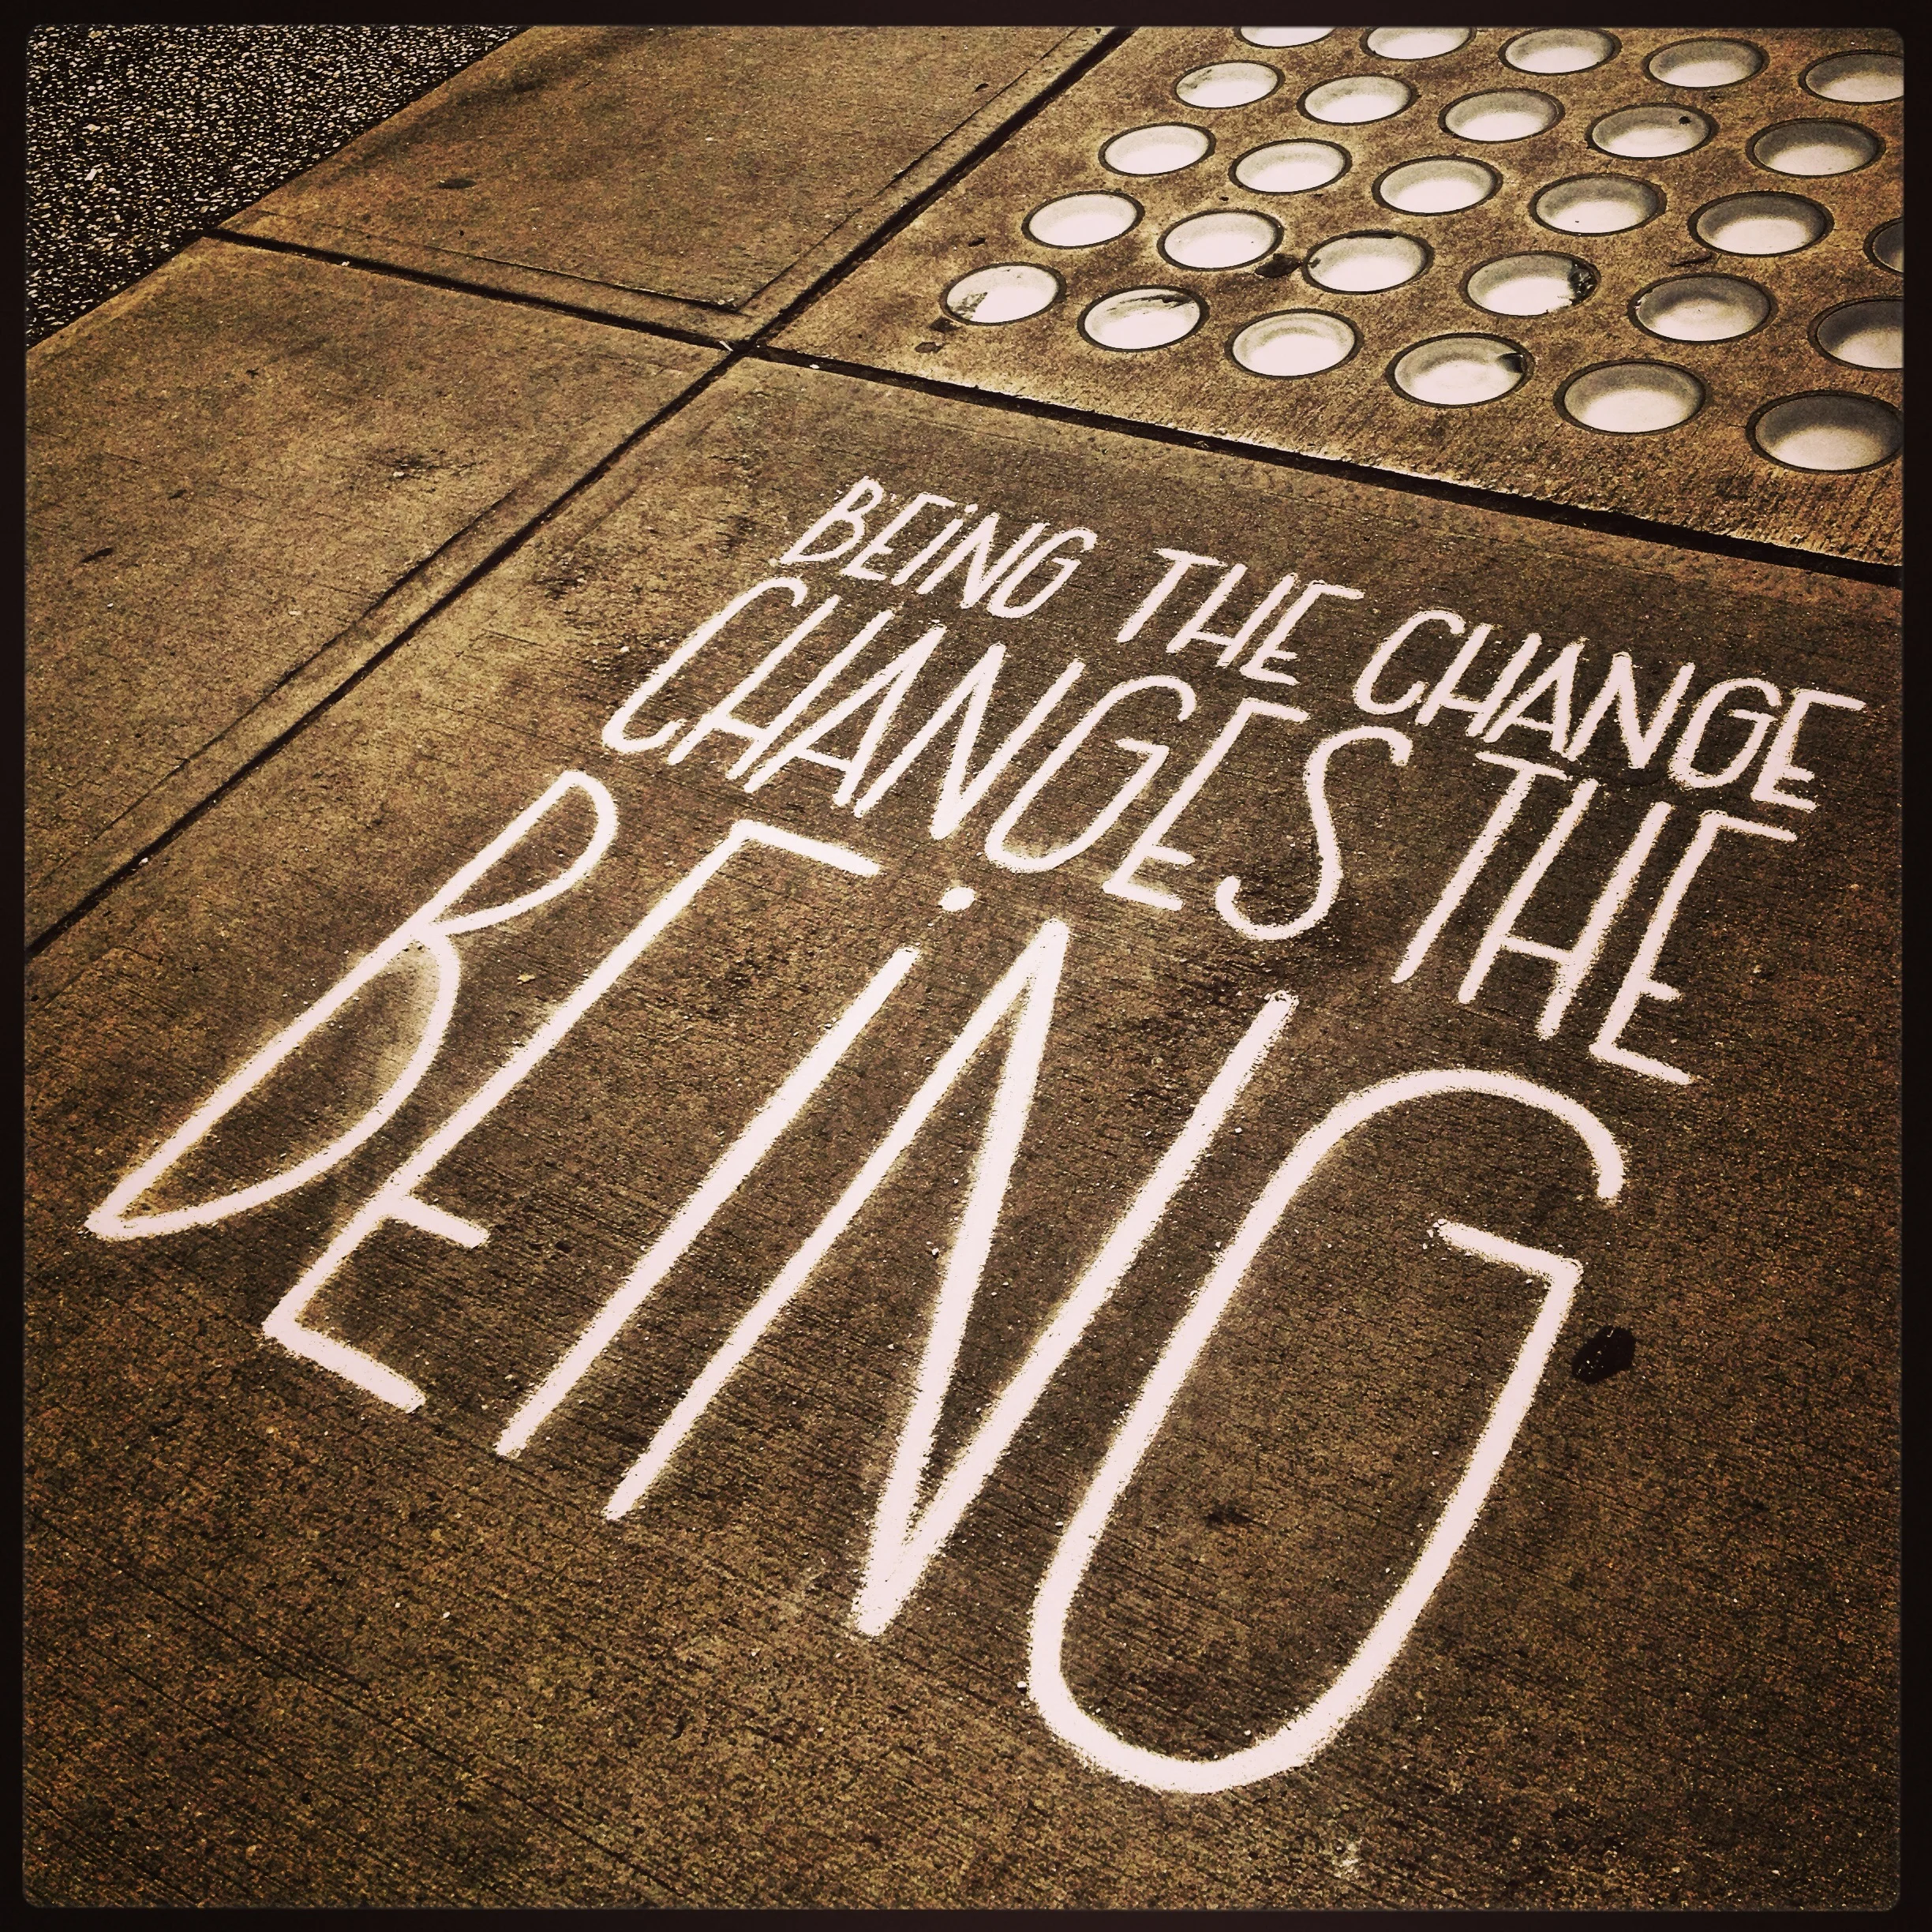 BEiNG THE CHANGE
CHANGES THE
BEiNG